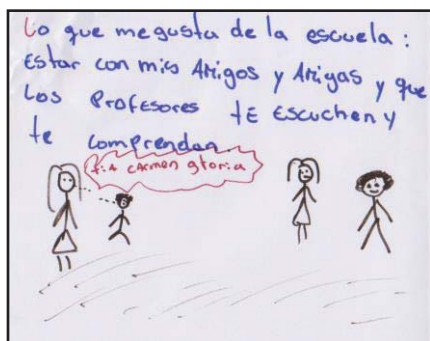 Lo que me gusta de la escuela:
Estar con mis Amigos y Amigas y que
Los Profesores tE Escuchen y
te comprendan.
tia carmen gloria